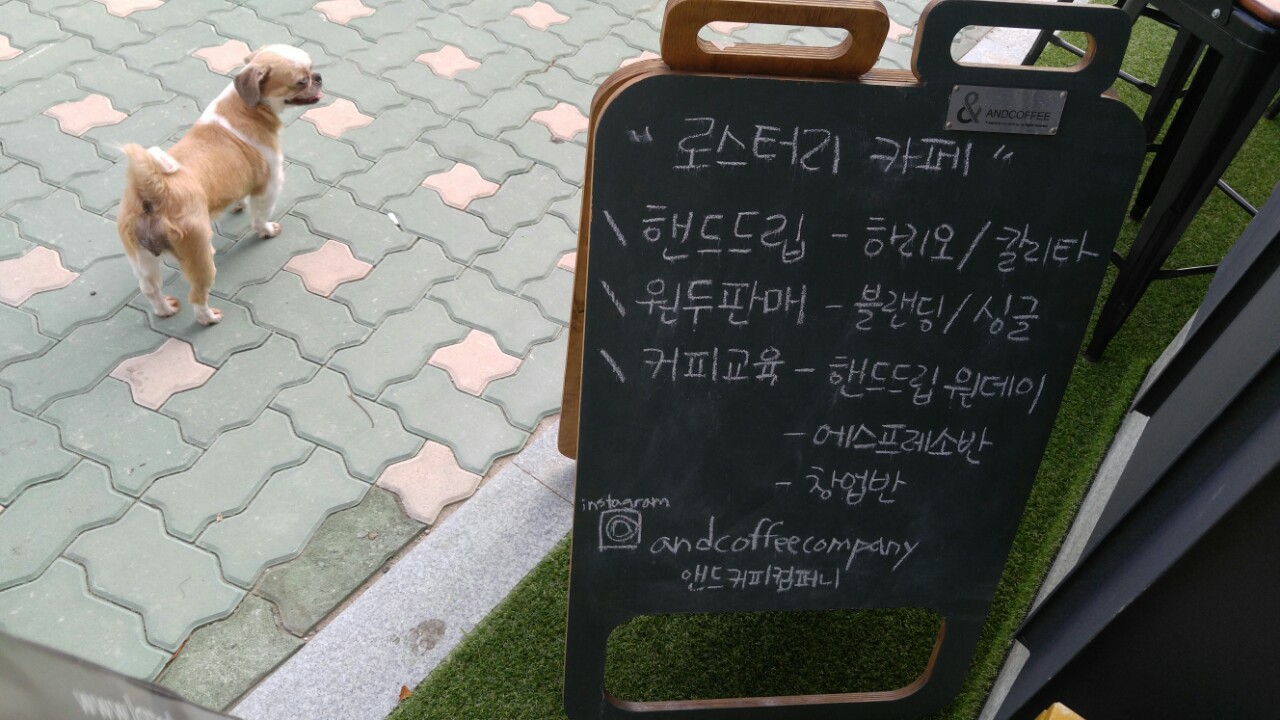 & ANDCOFFEE
" 로스터리 카페 "
\ 핸드드립 - 하리오/칼리타
\ 원두판매 - 블랜딩/싱글
\ 커피교육 - 핸드드립 원데이
- 에스프레소반
- 창업반
instagram
andcoffeecompany
앤드커피컴퍼니